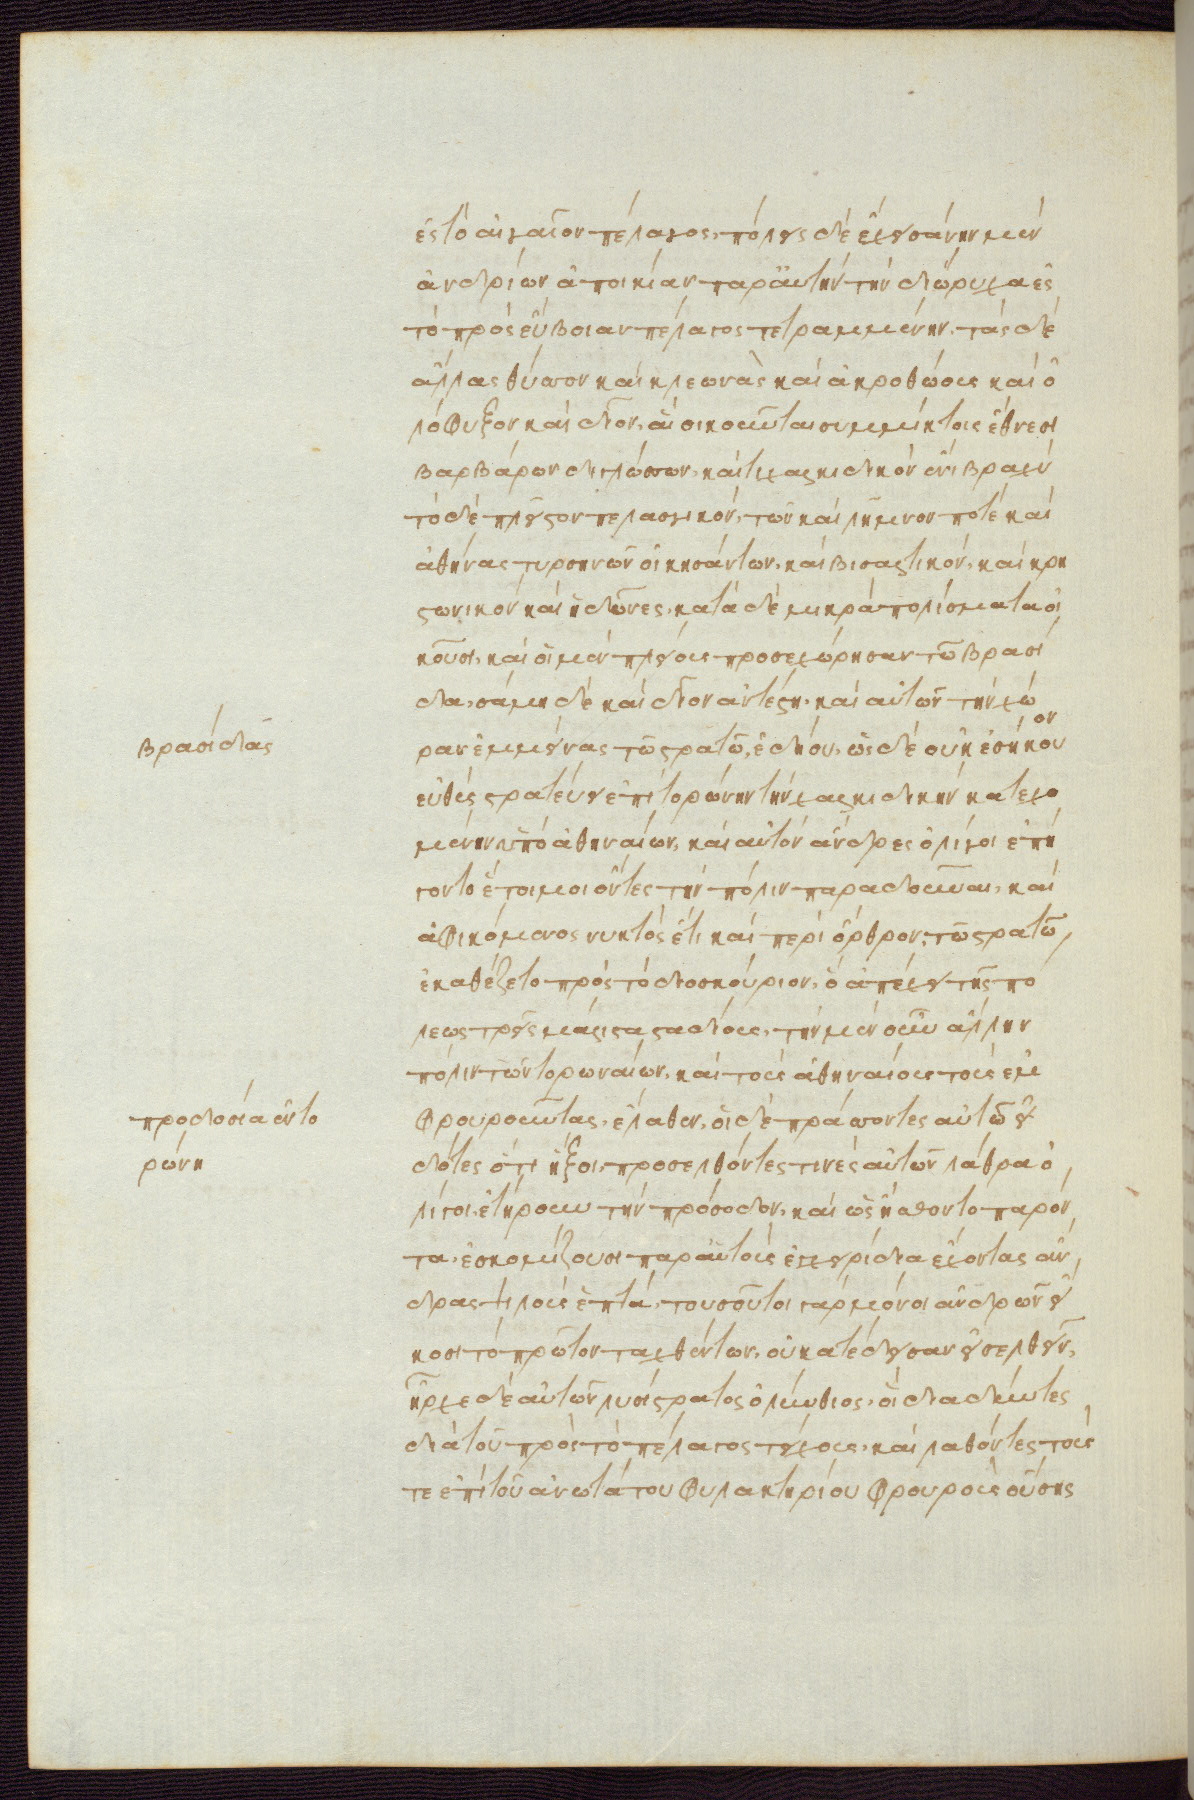 ἐς τὸ αἰγαῖον πέλαγος, πόλεις δὲ ἔχει σάνην μὲν
ἀνδρίων ἀποικίαν παρ' αὐτὴν τὴν διώρυχα ἐς
τὸ πρὸς εὔβοιαν πέλαγος τετραμμένην, τὰς δὲ
ἄλλας θύσσον καὶ κλεωνὰς καὶ ἀκροθώους καὶ ὀ
λόφυξον καὶ δῖον, αἳ οἰκοῦνται συμμίκτοις ἔθνεσι
βαρβάρων διγλώσσων, καί τι χαλκιδικὸν ἔνι βραχὺ
τὸ δὲ πλεῖστον πελασγικὸν, τῶν καὶ λῆμνον ποτὲ καὶ
ἀθήνας τυρσηνῶν οἰκησάντων, καὶ βισαλτικὸν, καὶ κρη
στωνικὸν καὶ ἠδῶνες, κατὰ δὲ μικρὰ πολίσματα οἰ
κοῦσι, καὶ οἱ μὲν πλείους προσεχώρησαν τῶ βρασί
δα, σάνη δὲ καὶ δῖον ἀντέστη, καὶ αὐτῶν τὴν χώ
ραν ἐμμείνας τῶ στρατῶ, ἐδήου, ὡς δὲ οὐκ ἐσήκουον
βρασίδας
εὐθὺς στρατεύει ἐπὶ τορώνην τὴν χαλκιδικὴν κατεχο
μένην ὑπὸ ἀθηναίων, καὶ αὐτὸν ἄνδρες ὀλίγοι ἐπή
γοντο ἑτοῖμοι ὄντες τὴν πόλιν παραδοῦναι, καὶ
ἀφικόμενος νυκτὸς ἔτι καὶ περὶ ὄρθρον, τῶ στρατῶ,
ἐκαθέζετο πρὸς τὸ διοσκούριον, ὃ ἀπέχει τῆς πό
λεως τρεῖς μάλιστα σταδίους, τὴν μὲν οὖν ἄλλην
πόλιν τῶν τορωναίων, καὶ τοὺς ἀθηναίους τοὺς ἐμ
φρουροῦντας, ἔλαθεν, οἱ δὲ πράσσοντες αὐτῶ εἰ
προδοσία ἐν το
ρώνη
δότες ὅτι ἥξοι, προσελθόντες τινὲς αὐτῶν λάθρα ὀ
λίγοι, ἐτήρουν τὴν πρόσοδον, καὶ ὡς ἤσθοντο παρόν
τα, ἐσκομίζουσι παρ' αὐτοὺς ἐγχειρίδια ἔχοντας ἄν
δρας ψιλοὺς ἑπτὰ, τοσοῦτοι γὰρ μόνοι ἀνδρῶν εἴ
κοσι τὸ πρῶτον ταχθέντων, οὐ κατέδεισαν εἰσελθεῖν,
ἦρχε δὲ αὐτῶν λυσίστρατος ὀλύνθιος, οἳ διαδύντες
διὰ τοῦ πρὸς τὸ πέλαγος τείχους, καὶ λαθόντες τούς
τε ἐπὶ τοῦ ἀνωτάτου φυλακτηρίου φρουροὺς οὔσης